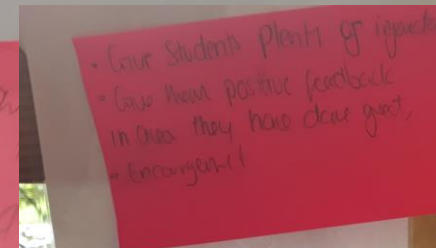 • Give Students Plenty of
• Give them positive feedback
in area they have done great,
• Encouragement